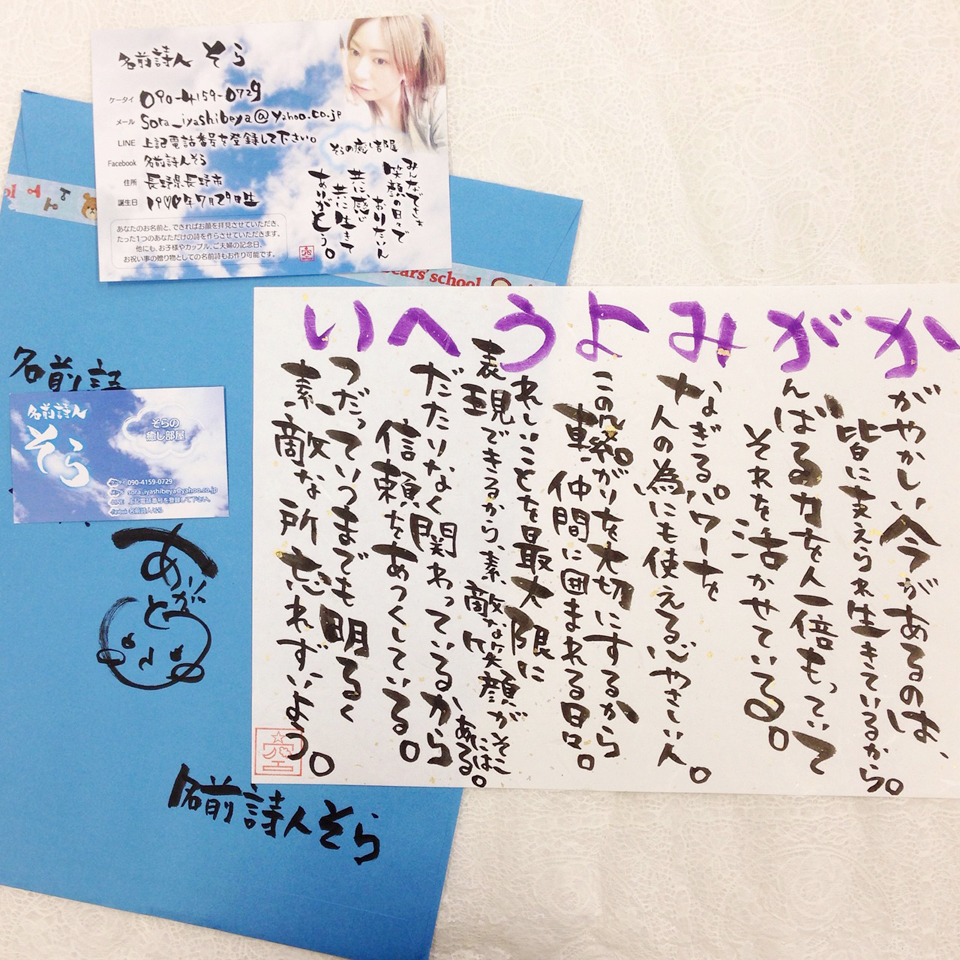 名前詩人 そら
ケータイ 090-4159-0729
メール sora_iyashibeya@yahoo.co.jp
LINE 上記電話番号を登録して下さい。
Facebook 名前詩人そら
住所 長野県長野市
誕生日 19♡♡年7月29日生
そらの癒し部屋
みんなでさぁ
笑顔の日々で
おりたいん
共に感じ
共に生きて
ありがとう。
あなたのお名前と、できればお顔を拝見させていただき、
たった1つのあなただけの詩を作らさせていただきます。
他にも、お子様やカップル、ご夫婦の記念日、
お祝い事の贈り物としての名前詩もお作り可能です。
bears' school
名前詩
名前詩人
そら
そらの
癒し部屋
090-4159-0729
sora_iyashibeya@yahoo.co.jp
上記電話番号を登録して下さい。
名前詩人そら
ありがとう
名前詩人そら
かがみようへい
がやかしい今があるのは、
皆に支えられ生きているから。
んばる力を人一倍もっていて
それを活かせている。
なぎるパワーを
人の為にも使える心やさしい人。
この繋がりを大切にするから
仲間に囲まれる日々。
れしいことを最大限に
表現できるから、素敵な笑顔がそこにはある。
だたりなく関わっているから
信頼をあつくしている。
つだっていつまでも明るく
素敵な所忘れずいよう。
空